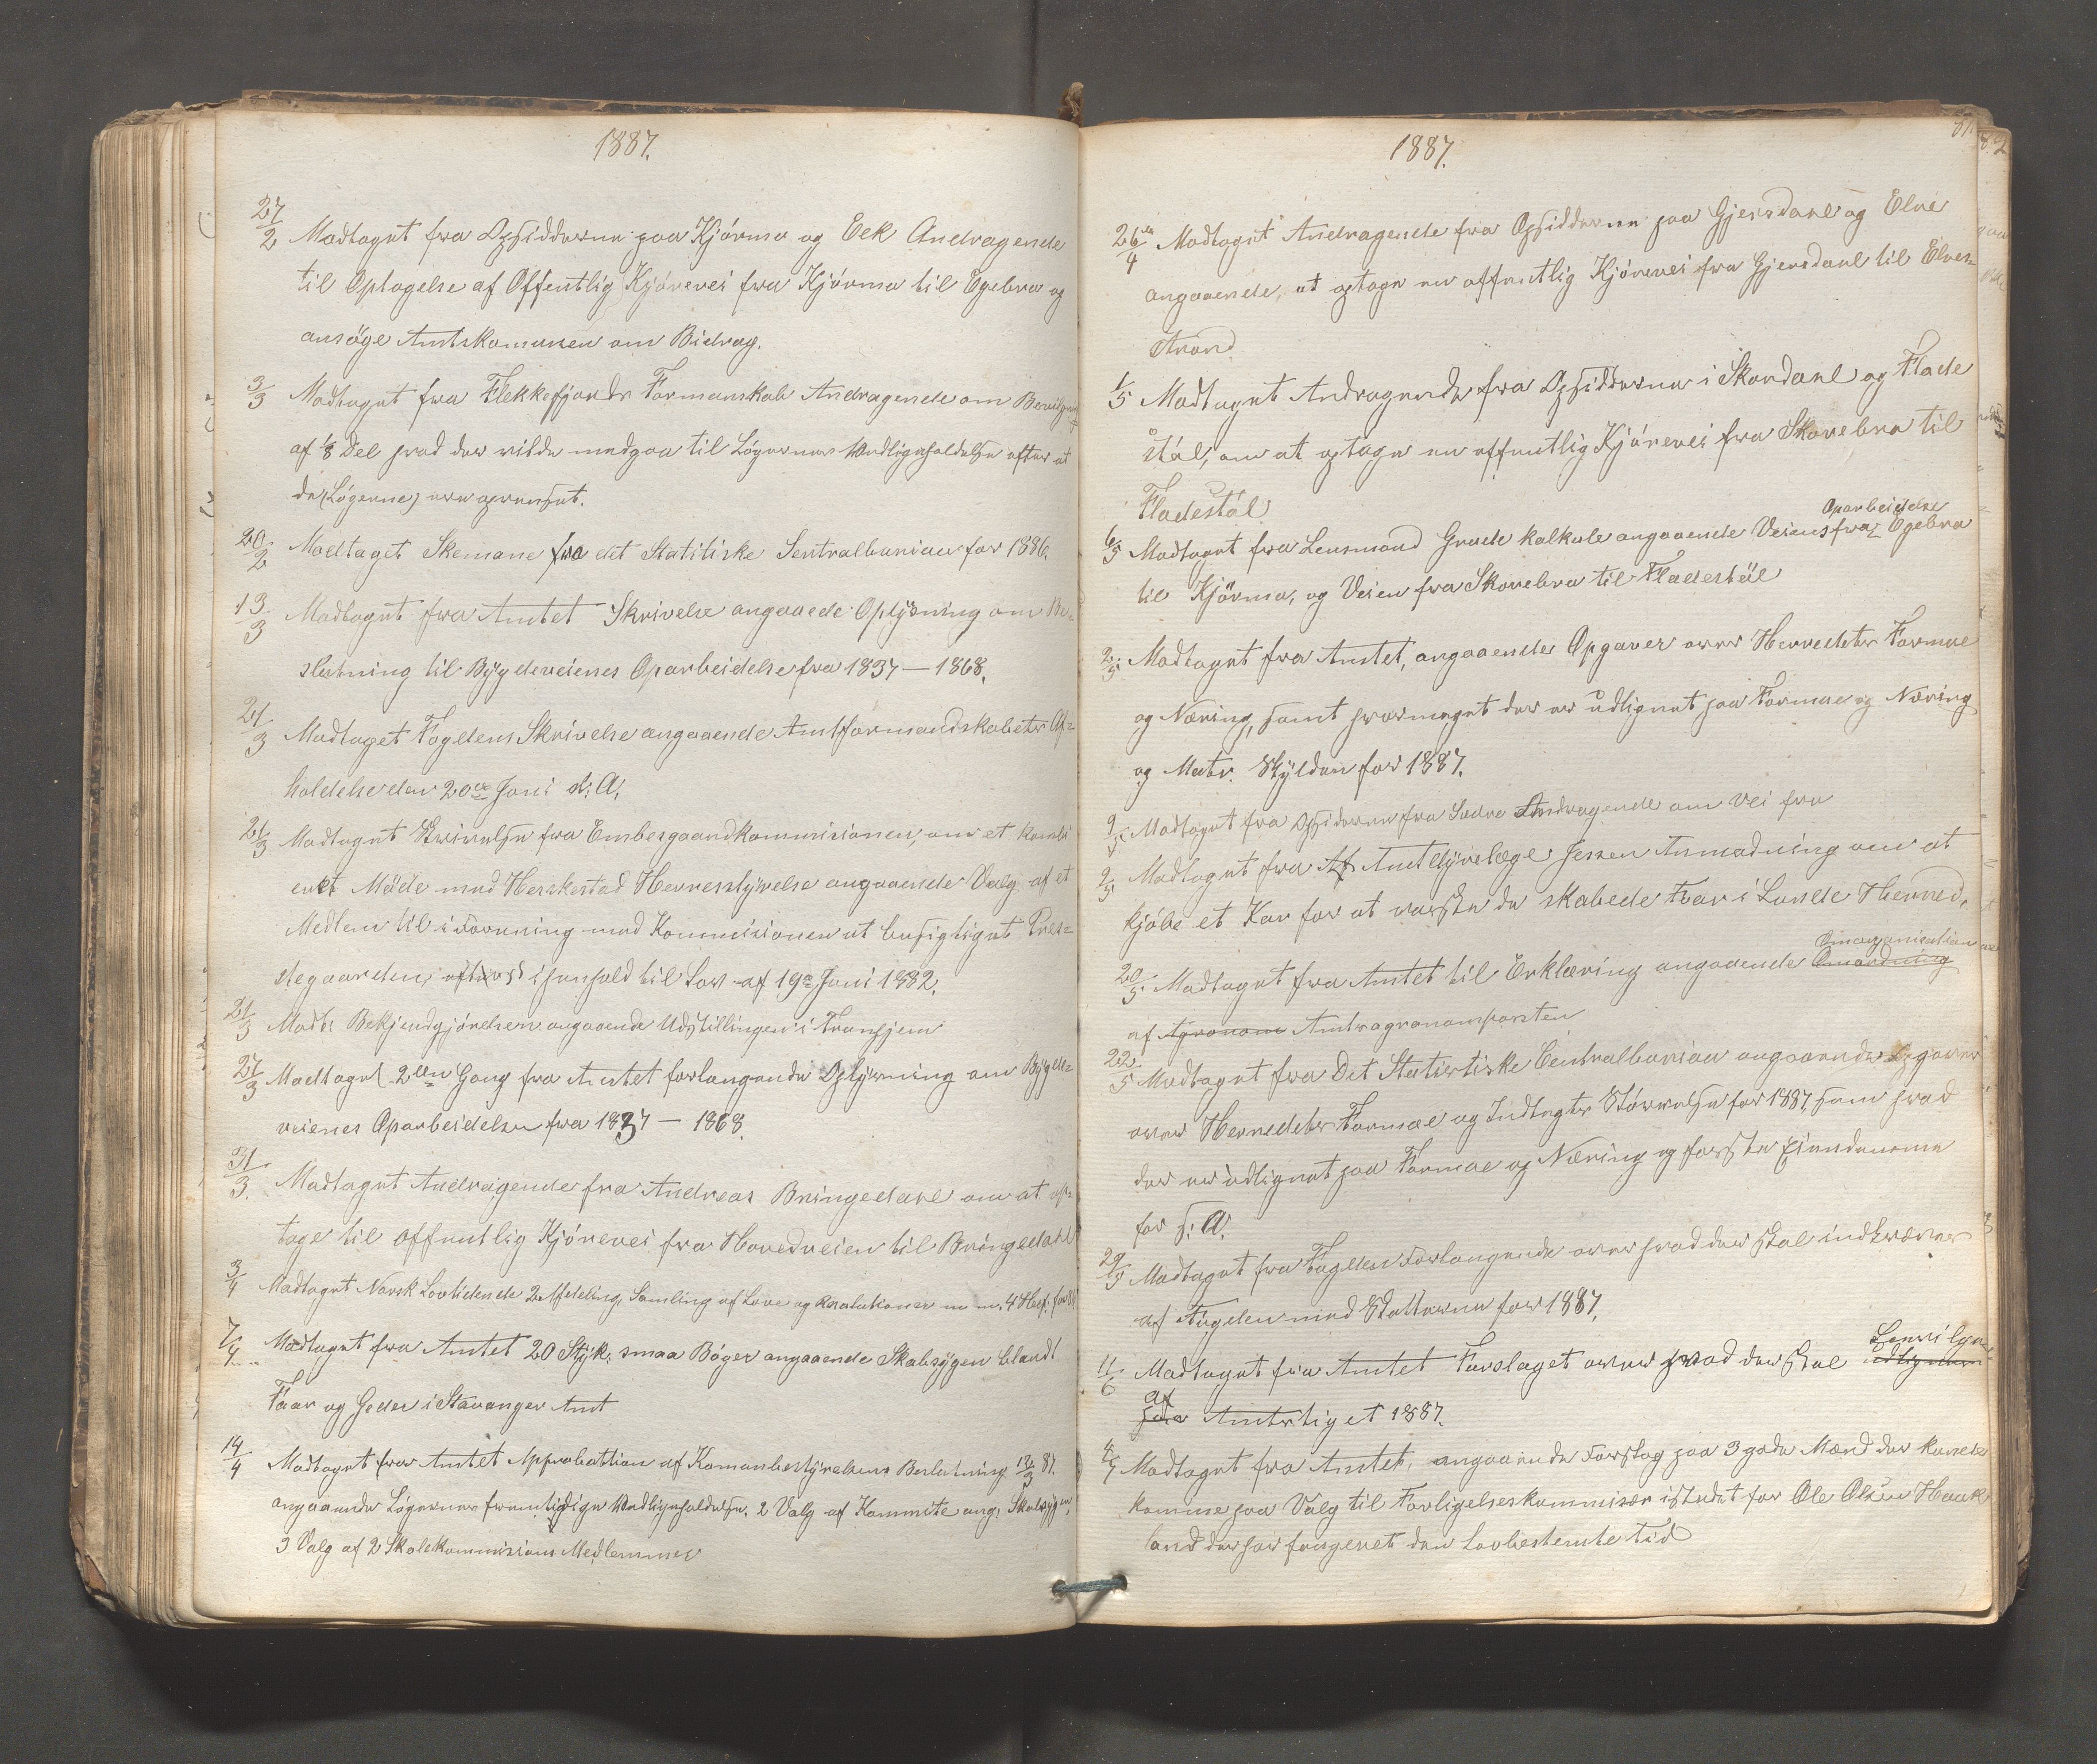 1887.
27/2 Modtaget fra Opsidderne paa Kjørmo og Eek Andragende
til Optagelse af Offentlig Kjørevei fra Kjørmo til Egebro og
ansøge Amtskomunen om Bidrag.
3/3 Modtaget fra Flekkefjords Formanskab Andragende om
af 1/8 Del hvad der vilde medgaa til Løgernes Vedligeholdelse efter at
de (Løgerne) ere oprenset.
20/2 Modtaget Skemane fra det Statitiske Sentralburiau for 1886.
13/3 Modtaget fra Amtet Skrivelse angaaede Oplysning om Be-
slutning til Bygdeveienes Oparbeidelse fra 1837 — 1868.
21/3 Modtaget Fogdens Skrivelse angaaende Amtformandskabets Af-
holdelse den 20de Juni d: A:
21/3 Modtaget Skrivelse fra Embesgaardkommisionen, om et
Møde med Heskestad Herresstyrelse angaaende Valg af et
Medlem til i Forening med Kommisionen at besigtiget Pres-
tegaarden, i Henhold til Lov af 19de Juni 1882.
21/3 Modt: Bekjendgjørelsen angaaende Udstillingen i Tronhjem
27/3 Modtaget 2den Gang fra Amtet forlangende Oplysning om Bygde-
veienes Oparbeidelse fra 1837 — 1868.
31/3. Modtaget Andragende fra Andreas Bringedahl om at op-
tage til offentlig Kjørevei fra Hovedveien til Bringedahl
3/4 Modtaget Norsk Lovtidende 2 Afdeling, Samling af Love og Resolutioner m m. 4 Hef. for
7/4 Modtaget fra Amtet 20 Styk: smaa Bøger angaaende Skabsygen blandt
Faar og Geder i Stavanger Amt
14/4 Modtaget fra Amtet Approbattion af Komunbestyrelsens Beslutning 12/3 87.
angaaende Løgernes fremtidige Vedligeholdelse. 2 Valg af Kommite ang: Skabsygen,
3 Valg af 2 Skolekommisions Medlemmer
1887.
82
26de/4 Modtaget Andragende fra Opsidderne paa Gjersdahl og Elve
angaaende, at optage en offentlig Kjørevei fra Gjersdahl til Elves-
trand
1/5 Modtaget Andragende fra Opsidderne i Skordahl og Flade
støl, om at optage en offentlig Kjørevei fra Skorebro til
Fladestøl
Oparbeidelse
6/5 Modtaget fra Lensmand Grude kalkule angaaende Veiens fra Egebro
til Kjørmo, og Veien fra Skorebro til Fladestøl
2/5 Modtaget fra Amtet, angaaende Opgaver over Herredets Formue
og Næring, samt hvormeget der er udlignet paa Formue og Næring
og Matr. Skylden for 1887.
9/5 Modtaget fra Opsiderne fra Andragende om Vei fra
9/5 Modtaget fra Amtdyrelæge Jessen Anmodning om at
kjøbe et Kar for at vaske de skabede Faar i Lunde Herred.
Omorganisation
20/5 Modtaget fra Amtet til Erklæring angaaende Omordning
af Agronom Amtsagronomposten
22/5 Modtaget fra Det Statistiske Centralburiau angaaende Opgaver
over Herredets Formue og Indtægts Størrelse for 1887, som hvad
der er udlignet paa Formue og Næring og faste Eiendomme
for f: A:
29/5 Modtaget fra Fogden Forlangende over hvad der skal indkræves
af Fogden med Skatterne for 1887.
11/6 Modtaget fra Amtet Forslaget over hvad der skal udlignes
af
Amtstiget 1887.
4/7 Modtaget fra Amtet, angaaende Forslag paa 3 gode Mænd der kunde
komme paa Valg til Forligelseskommisær istedet for Ole Olsen Hauk
land der har fongeret den Lovbestemte Tid